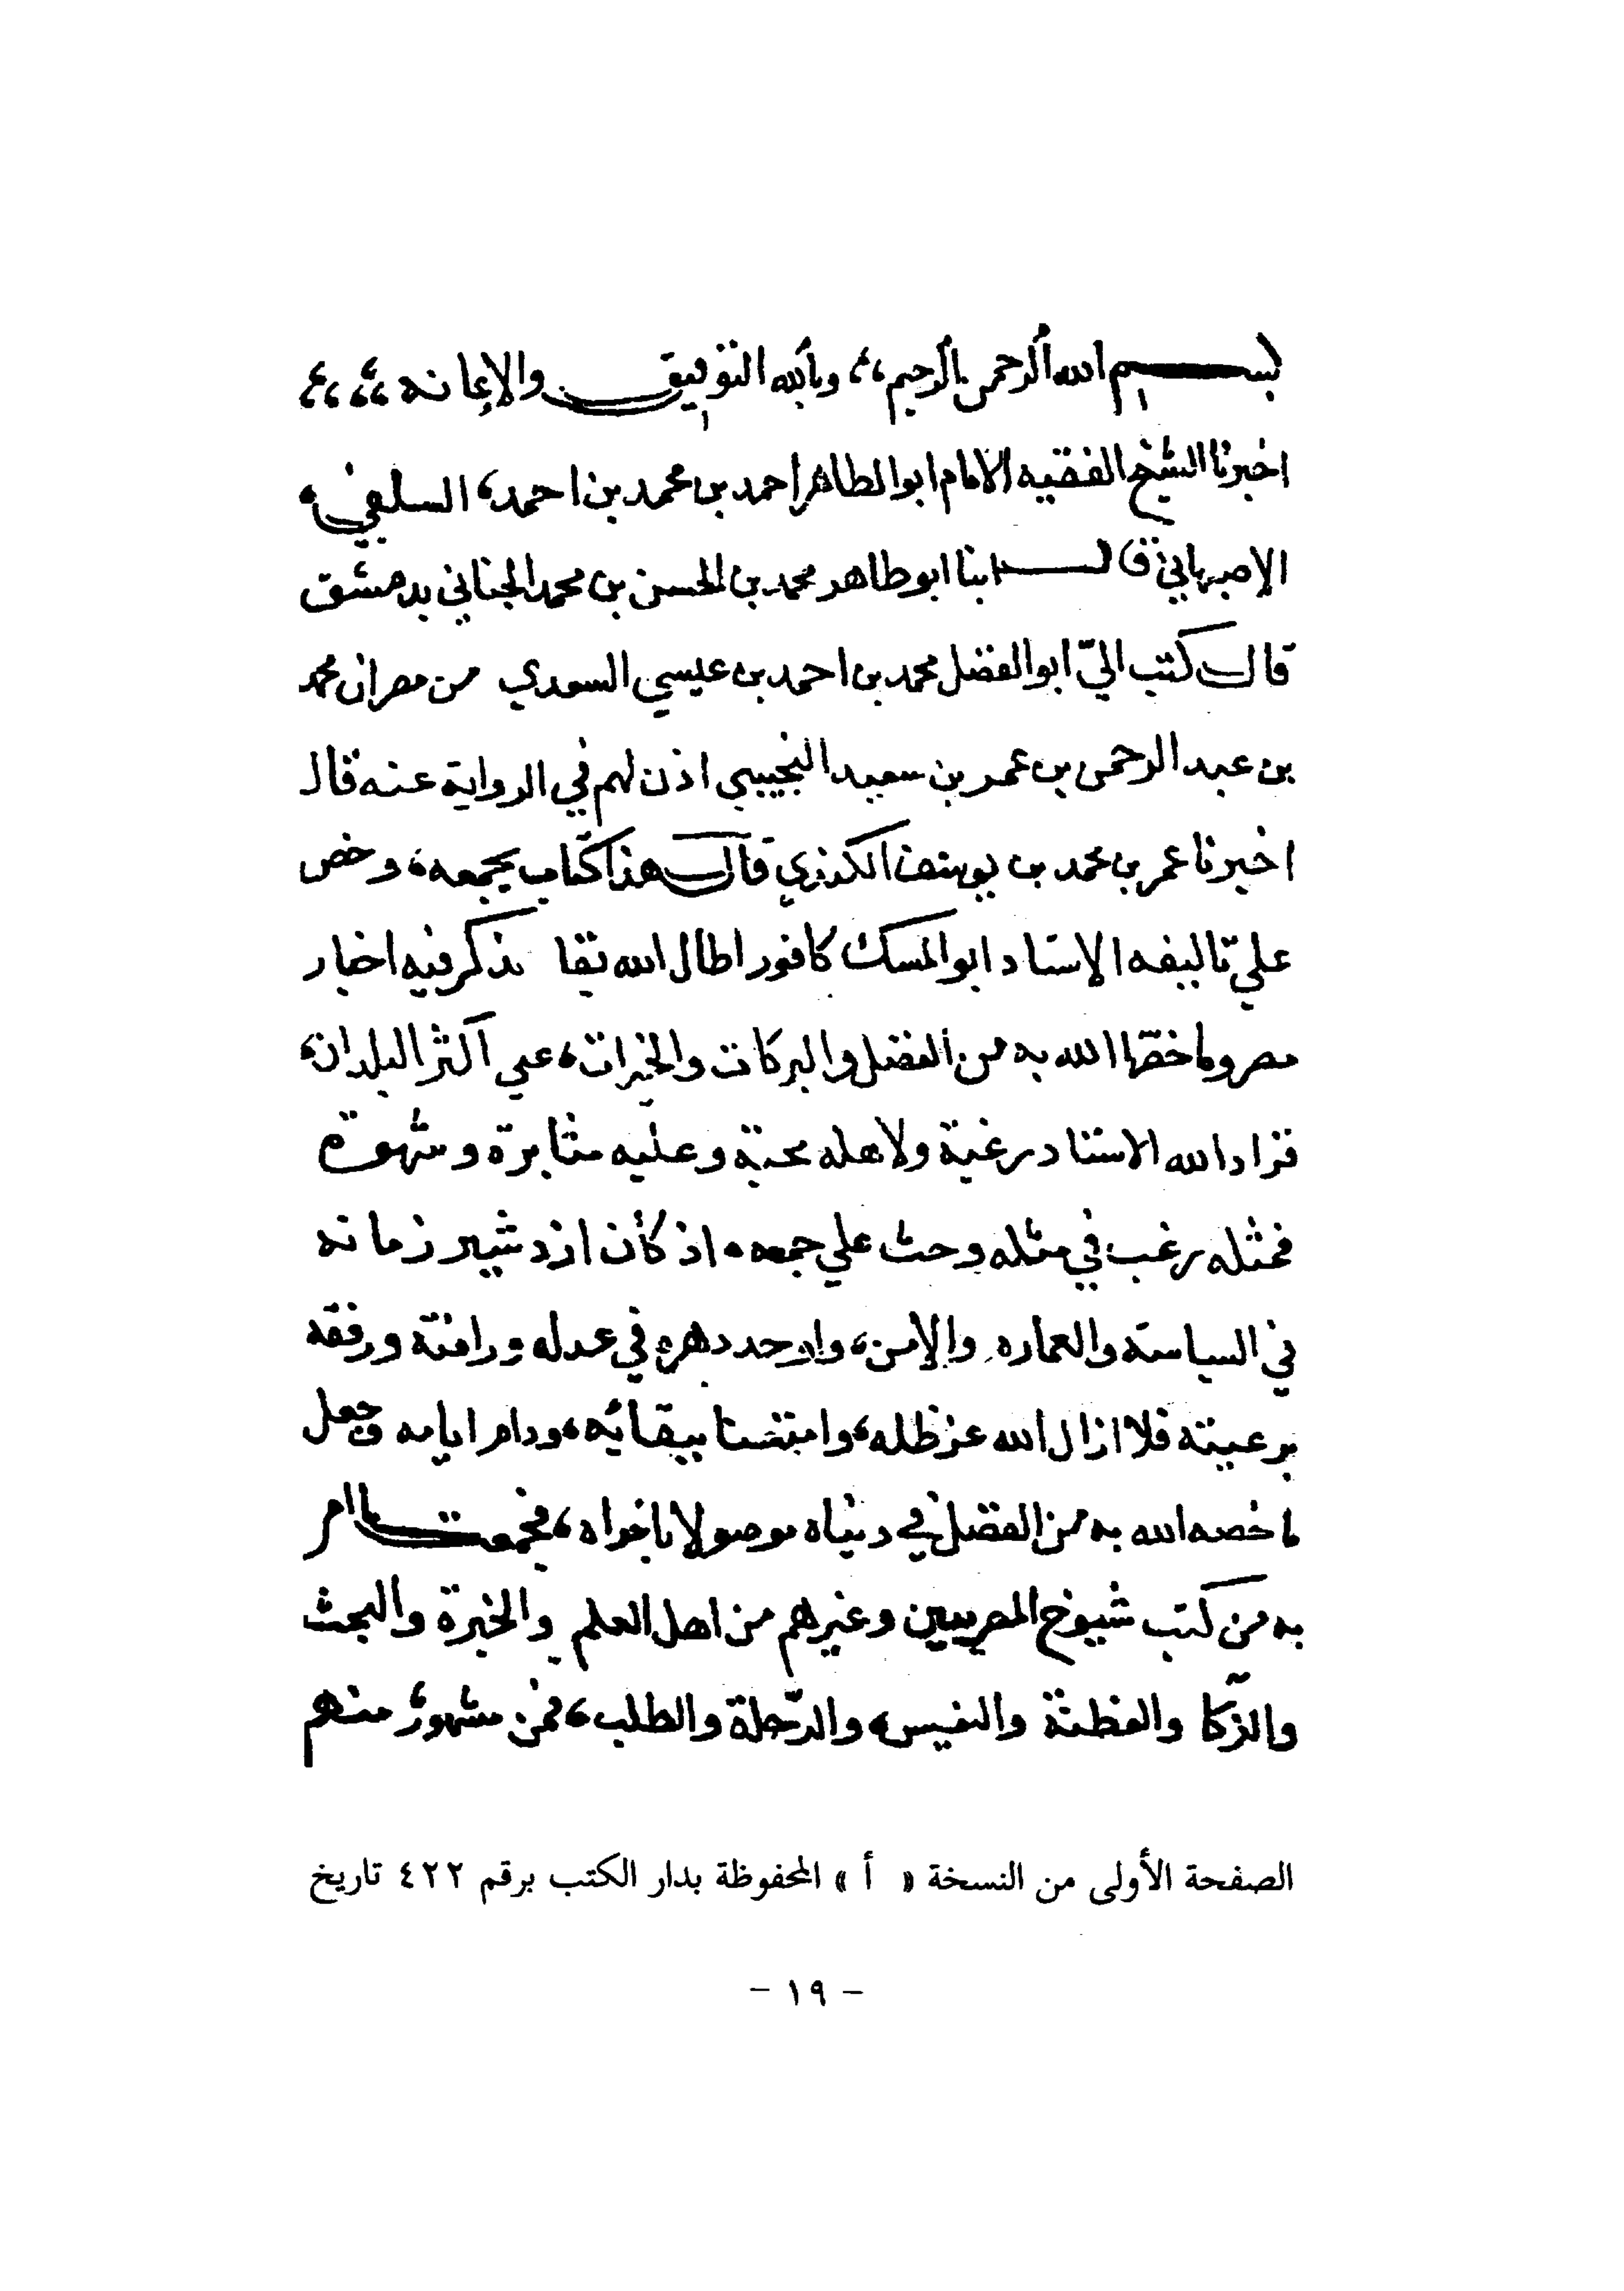 بسم الله الرحمن الرحيم، وبالله التوفيق والإعانه
اخبرنا الشيخ الفقيه الامام ابوالطاهر احمد بن محمد بن احمد، السلفي،
الإصبهاني قال ابنا ابو طاهر محمد بن الحسن بن محمد الجناني بدمشق
قال كتب اليّ ابوالفضل محمد بن احمد بن عيسي السعدي من مصر ان محمد
بن عبد الرحمن بن عمر بن سعيد التجيبي اذن لهم في الرواية عنه قال
اخبرنا عمر بن محمد بن يوسف الكندي قال هذا كتاب بجمعه، وخص
علي تاليفه الإستاد ابوالمسك كافور اطال الله بقا يذكر فيه اخبار
مصر وما خصّها الله به من الفضل والبركات والخيرات، علي اكثر البلدان،
فزاد الله الاستاد رغبة ولاهله محبة وعليه مثابرة وشهوة
فمثله رغب في مثله وحث علي جمعه، اذ كان ازدشير زمانه
في السياسة والعماره والإمن، واوحد دهره في عدله ورافتة ورفقه
برعيته فلا ازال الله عز ظله، وامتعنا ببقائه، ودام ايامه وجعل
ما خصه الله به من الفضل في دنياه موصولا باخراه، فجمعت ما امر
به من كتب شيوخ المصريين وغيرهم من اهل العلم والخبرة والبحث
والذكا والفطنة والرّحلة والطلب، فمن مشهور منهم
الصفحة الأولى من النسخة « أ » المحفوظة بدار الكتب برقم ٤٢٢ تاريخ
- ١٩ -